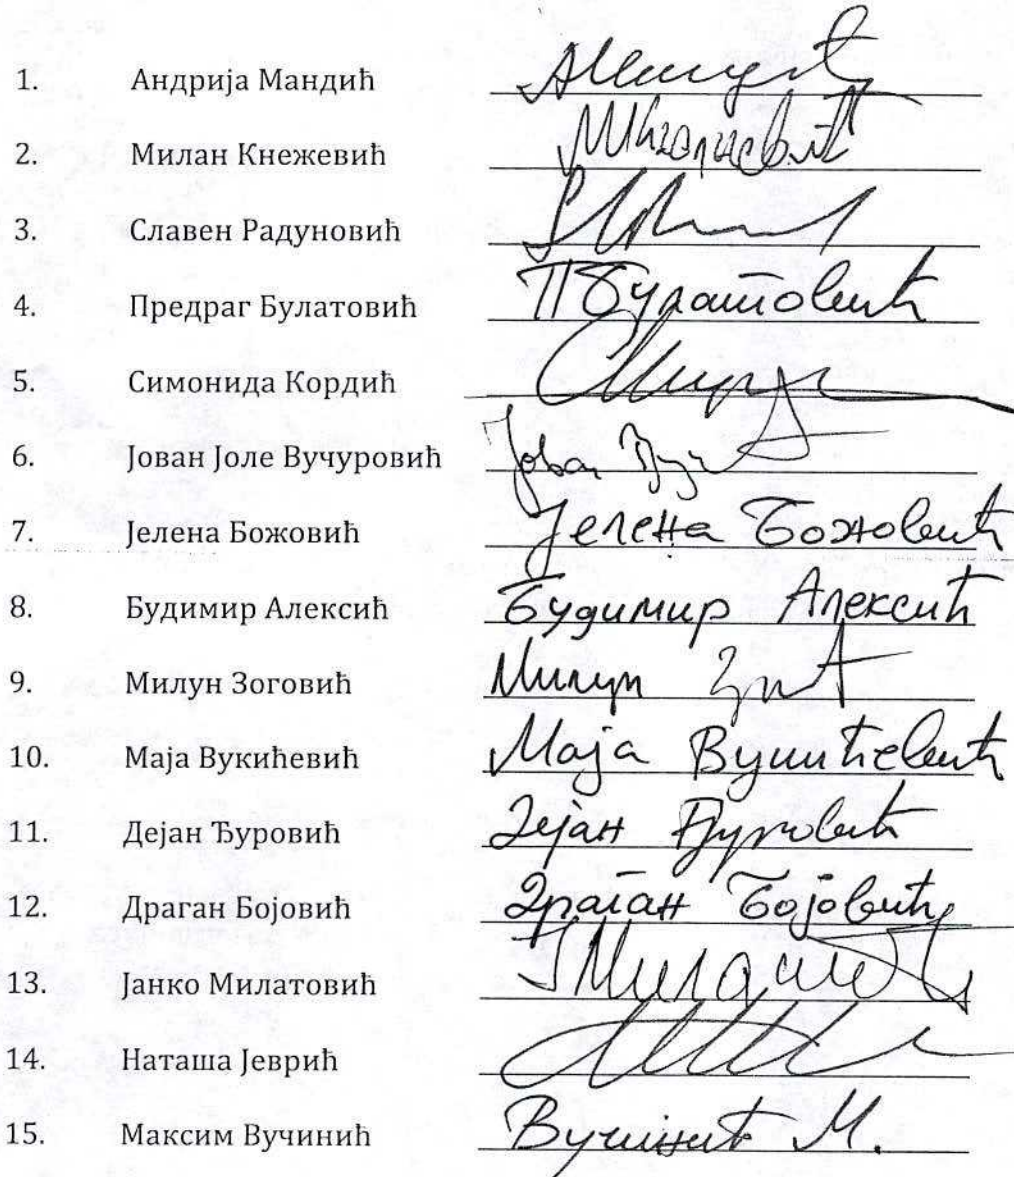 1. Андрија Мандић
2. Милан Кнежевић
3. Славен Радуновић
4. Предраг Булатовић ПБулатовић
5. Симонида Кордић
6. Јован Јоле Вучуровић Јован
7. Јелена Божовић Јелена Божовић
8. Будимир Алексић Будимир Алексић
9. Милун Зоговић Милун
10. Маја Вукићевић Маја Вукићевић
11. Дејан Ђуровић Дејан Ђуровић
12. Драган Бојовић Драган Бојовић
13. Јанко Милатовић
14. Наташа Јеврић
15. Максим Вучинић Вучинић М.